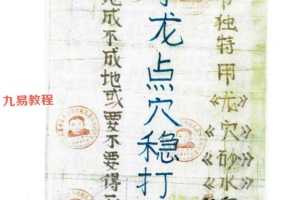 独特用《龙》《穴》《砂》《水》
龙点穴稳打
地成不成地或要不要得
九易教程